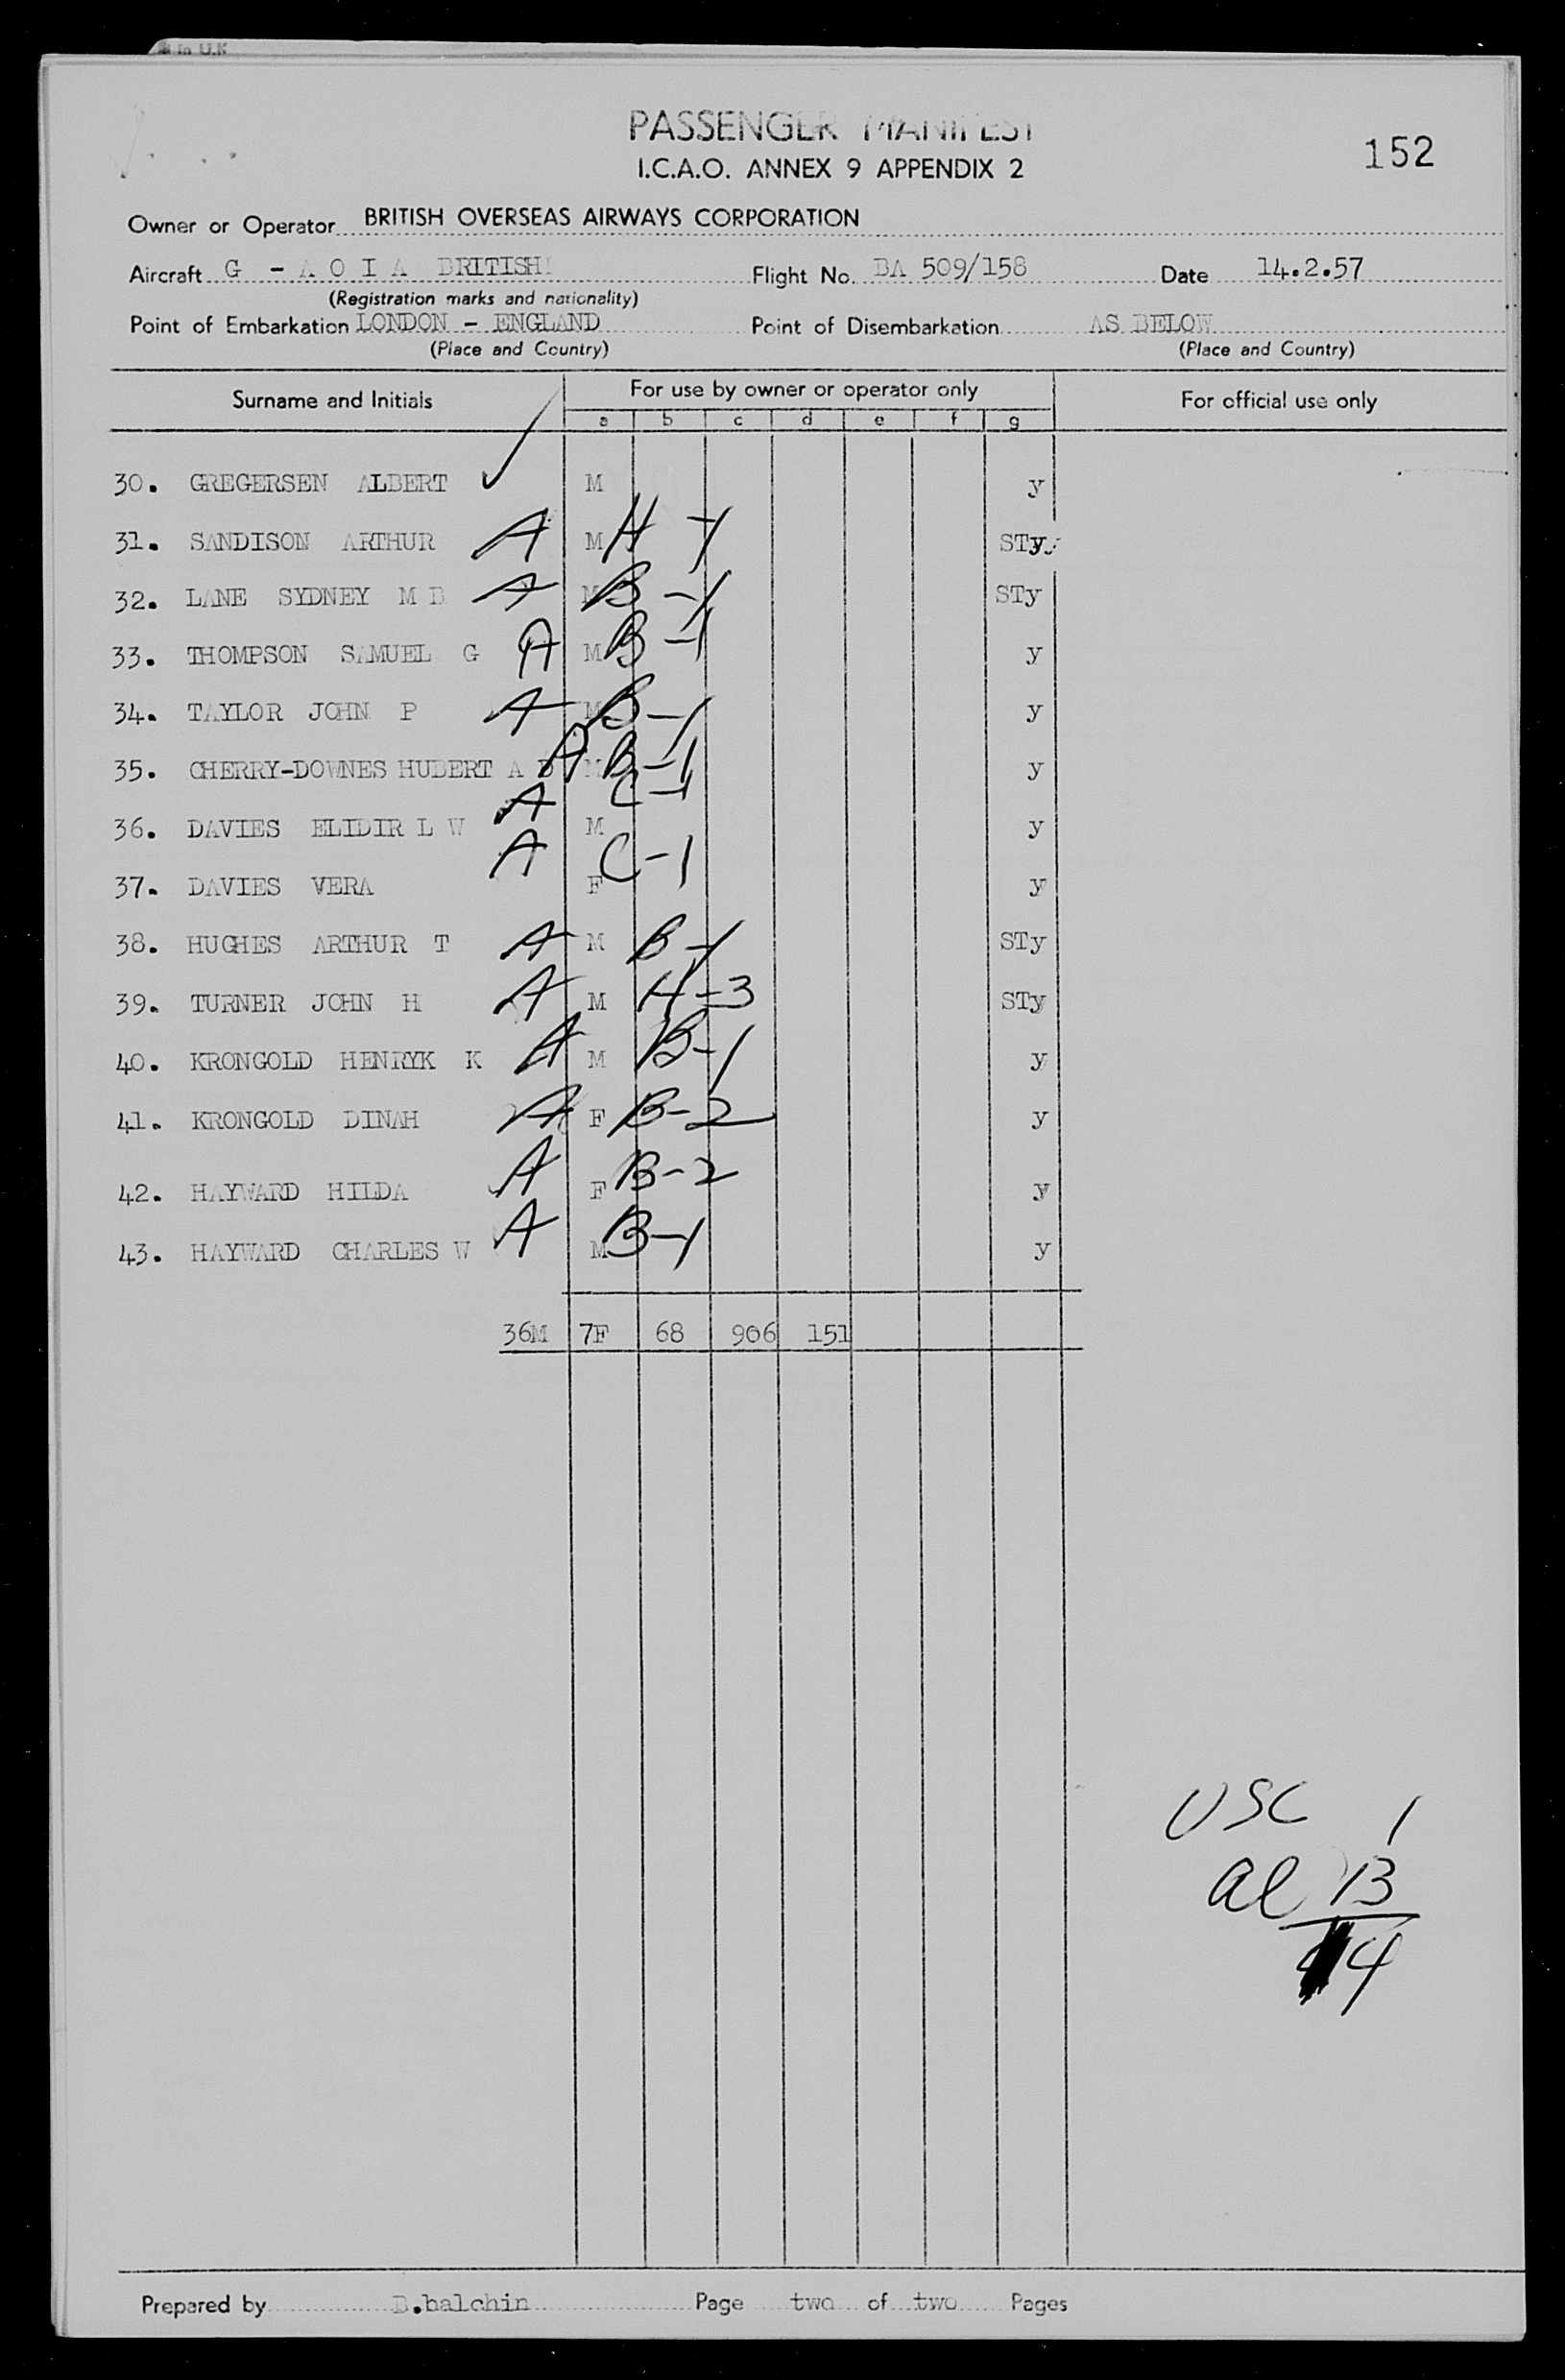 in U.K
PASSENGER MANIFEST
152
I.C.A.O. ANNEX 9 APPENDIX 2
Owner or Operator BRITISH OVERSEAS AIRWAYS CORPORATION
Aircraft G - A O I A BRITISH Flight No. BA 509/158 Date 14.2.57
(Registration marks and nationality)
Point of Embarkation LONDON - ENGLAND Point of Disembarkation AS BELOW
(Place and Country) (Place and Country)
Surname and Initials For use by owner or operator only For official use only
a b c d e f g
30. GREGERSEN ALBERT M y
31. SANDISON ARTHUR A M H-1 STy
32. LANE SYDNEY M B A M B-1 STy
33. THOMPSON SAMUEL G A M B-1 y
34. TAYLOR JOHN P A M B-1 y
35. CHERRY-DOWNES HUBERT A D A M B-1 y
36. DAVIES ELIDIR L W A M C-1 y
37. DAVIES VERA A F C-1 y
38. HUGHES ARTHUR T A M B-1 STy
39. TURNER JOHN H A M H-3 STy
40. KRONGOLD HENRYK K A M B-1 y
41. KRONGOLD DINAH A F B-2 y
42. HAYWARD HILDA A F B-2 y
43. HAYWARD CHARLES W A M B-1 y
36M 7F 68 906 151
USC 1
al 13
14
Prepared by B.balchin Page two of two Pages